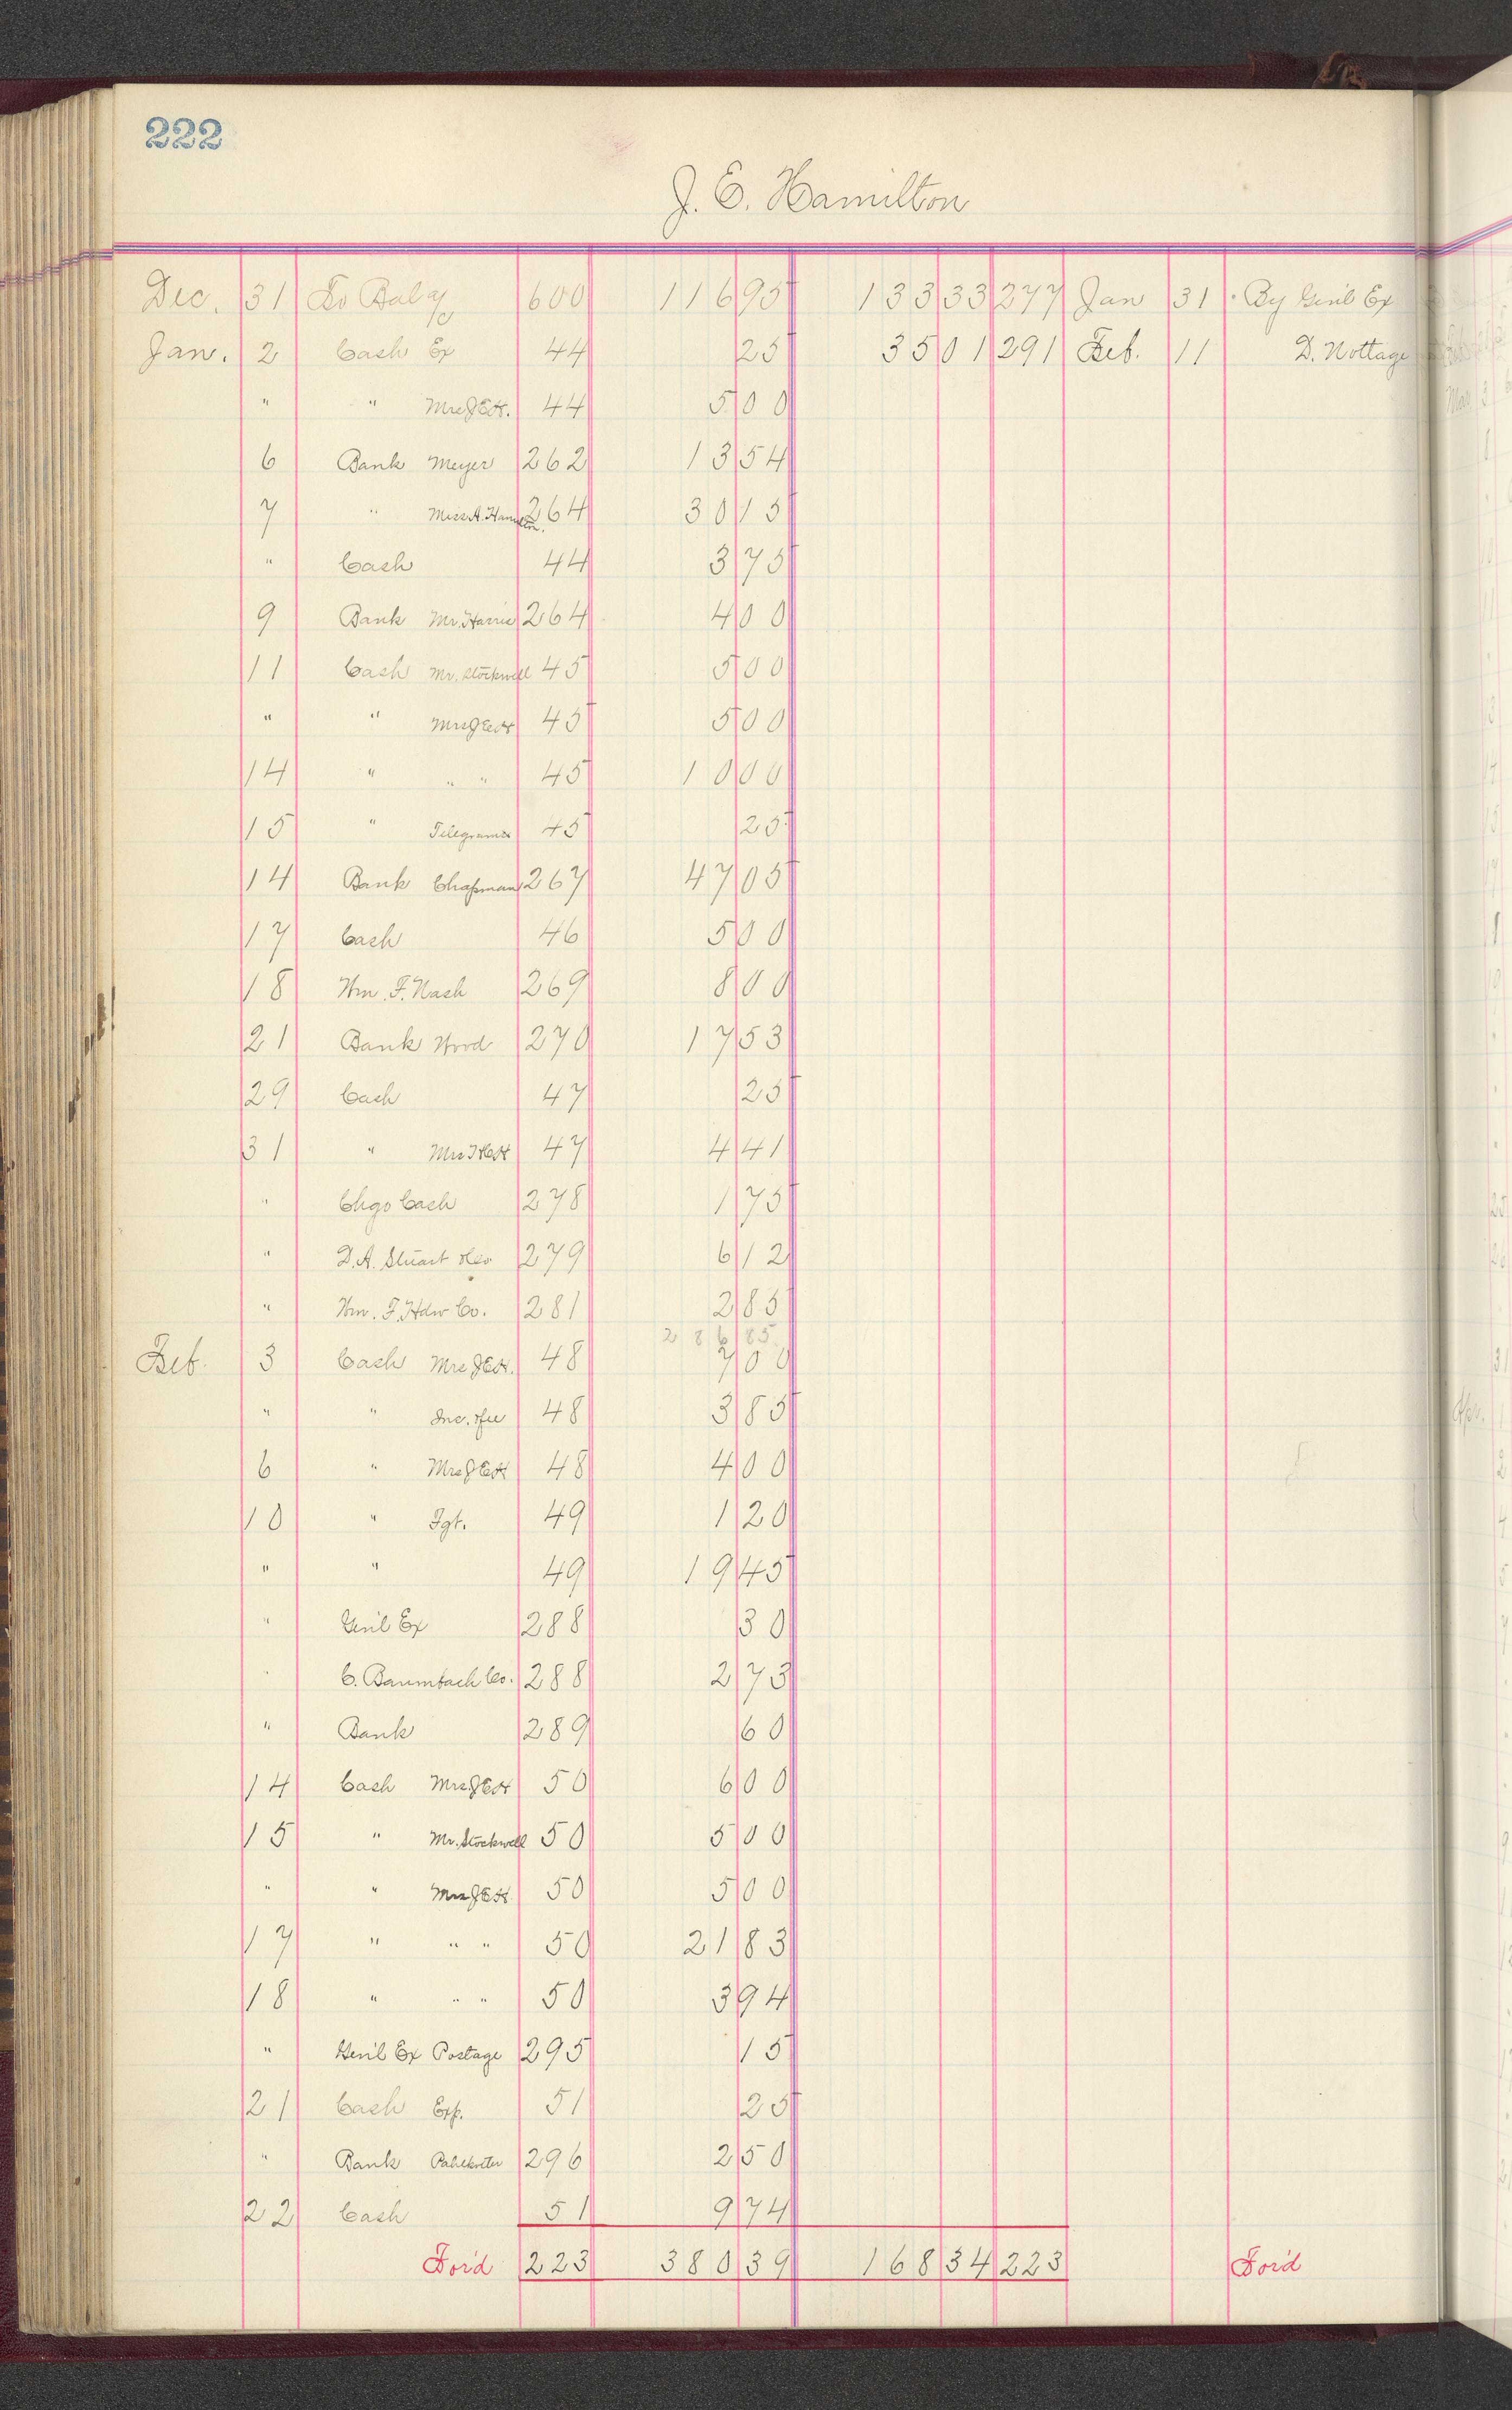 222
J. E. Hamilton
Dec. 31 To Bal a/c 600 116 95 133 33 277 Jan 31 By Gen'l Ex
Jan. 2 Cash Ex 44 25 35 01 291 Feb. 11 D. Nottage
" " Mrs J E H. 44 5 00
6 Bank Meyer 262 13 54
7 " Miss A. Hamilton. 264 30 15
" Cash 44 3 75
9 Bank Mr. Harris 264 4 00
11 Cash Mr. Stockwell 45 5 00
" " Mrs J E H 45 5 00
14 " " " 45 10 00
15 " Telegrams 45 25
14 Bank Chapman 267 47 05
17 Cash 46 5 00
18 Wm. F. Nash 269 8 00
21 Bank Wood 270 17 53
29 Cash 47 25
31 " Mrs J E H 47 4 41
" Chgo Cash 278 1 75
" D. A. Stuart 279 6 12
" Wm. F. Hdw Co. 281 2 85
286 85
Feb. 3 Cash Mrs J E H. 48 7 00
" " Inc. 48 3 85
6 " Mrs J E H 48 4 00
10 " Fgt. 49 1 20
" " 49 19 45
" Gen'l Ex 288 30
" C. Baumbach Co. 288 2 73
" Bank 289 60
14 Cash Mrs. J E H 50 6 00
15 " Mr. Stockwell 50 5 00
" " Mrs J E H 50 5 00
17 " " " 50 21 83
18 " " " 50 3 94
" Gen'l Ex Postage 295 15
21 Cash Exp. 51 25
" Bank 296 2 50
22 Cash 51 9 74
For'd 223 380 39 168 34 223 For'd